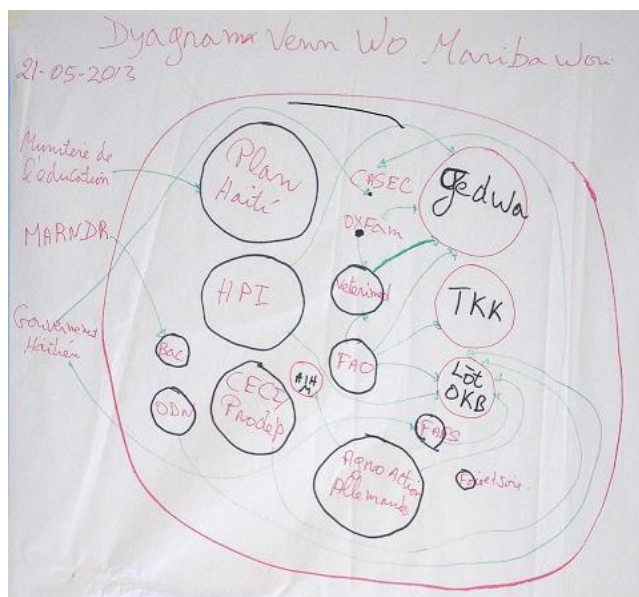 Dyagrama Venn Wo Mariba Wou
21-05-2013
Ministere de
l'éducation
MARNDR
Gouvernement
Haïtien
Plan
Haïti
CASEC
OXFam
gedwa
HPI
Veterimed
TKK
Bac
ODN
CECI
Prodep
FAO
Lòt
OKB
FAES
Agro Action
Allemande